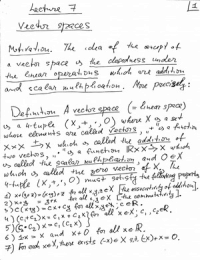 Lecture 7
1
Vector spaces
Motivation. The idea of the concept of
a vector space is the closedness under
the linear operations which are addition
and scalar multiplication. More precisely:
Definition A vector space (= linear space)
is a 4-tuple (X, +, ·, 0) where X is a set
whose elements are called vectors, "+" is a function
X × X → X which is called the addition of
two vectors, "·" is a function R × X → X which
is called the scalar multiplication, and 0 ∈ X
which is called the zero vector of X. The
4-tuple (X, +, ·, 0) must satisfy the following properties
1) x+(y+z)=(x+y)+z for all x,y,z∈X [the associativity of addition].
2) x+y = y+x for all x,y∈X [the commutativity].
3) c(x+y)=cx+cy for all x,y∈X, c∈R.
4) (c₁+c₂)x = c₁x + c₂x for all x∈X; c₁,c₂∈R.
5) (c₁c₂)x = c₁(c₂x).
6) 1x = x and x+0 = x for all x∈X.
7) For each x∈X, there exists (-x)∈X s.t. (-x)+x=0.